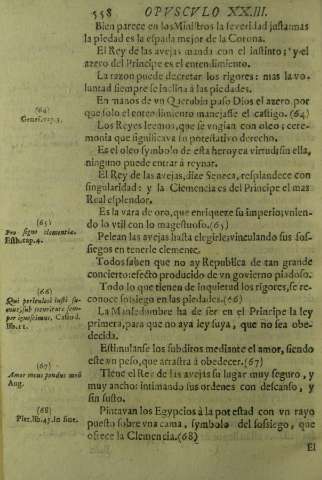 558 OPVSCVLO XXIII.
Bien parece en los Ministros la severidad justa: mas
la piedad es la espada mejor de la Corona.
El Rey de las avejas manda con el instinto; y el
azero del Principe es el entendimiento.
La razon puede decretar los rigores: mas la vo-
luntad siempre se inclina à las piedades.
En manos de vn Querubin puso Dios el azero, por
que solo el entendimiento manejasse el castigo. (64)
(64)
Genes. cap. 3.
Los Reyes leemos, que se vngian con oleo; cere-
monia que significava su potestativo derecho.
Es el oleo symbolo de esta heroyca virtud; sin ella,
ninguno puede entrar à reynar.
El Rey de las avejas, dize Seneca, resplandece con
singularidad: y la Clemencia es del Principe el mas
Real esplendor.
Es la vara de oro, que enriqueze su imperio; vnien-
do lo vtil con lo magestuoso. (65)
(65)
Pro signo clementiæ.
Esth. cap. 4.
Pelean las avejas hasta elegirles; vinculando sus sos-
siegos en tenerle clemente.
Todos saben que no ay Republica de tan grande
concierto: efecto producido de vn govierno piadoso.
Todo lo que tienen de inquietud los rigores, se re-
conoce sossiego en las piedades. (66)
(66)
Qui periculosè iusti su-
mus, sub securitate sem-
per ignoscimus. Casiod.
lib. 11.
La Mansedumbre ha de ser en el Principe la ley
primera, para que no aya ley suya, que no sea obe-
decida.
Estimulanse los subditos mediante el amor, siendo
este vn peso, que arrastra à obedecer. (67)
(67)
Amor meus pondus meũ
Aug.
Tiene el Rey de las avejas su lugar muy seguro, y
muy ancho: intimando sus ordenes con descanso, y
sin susto.
Pintavan los Egypcios à la potestad con vn rayo
puesto sobre vna cama, symbolo del sossiego, que
ofrece la Clemencia. (68)
(68)
Pier. lib. 43. in fine.
El